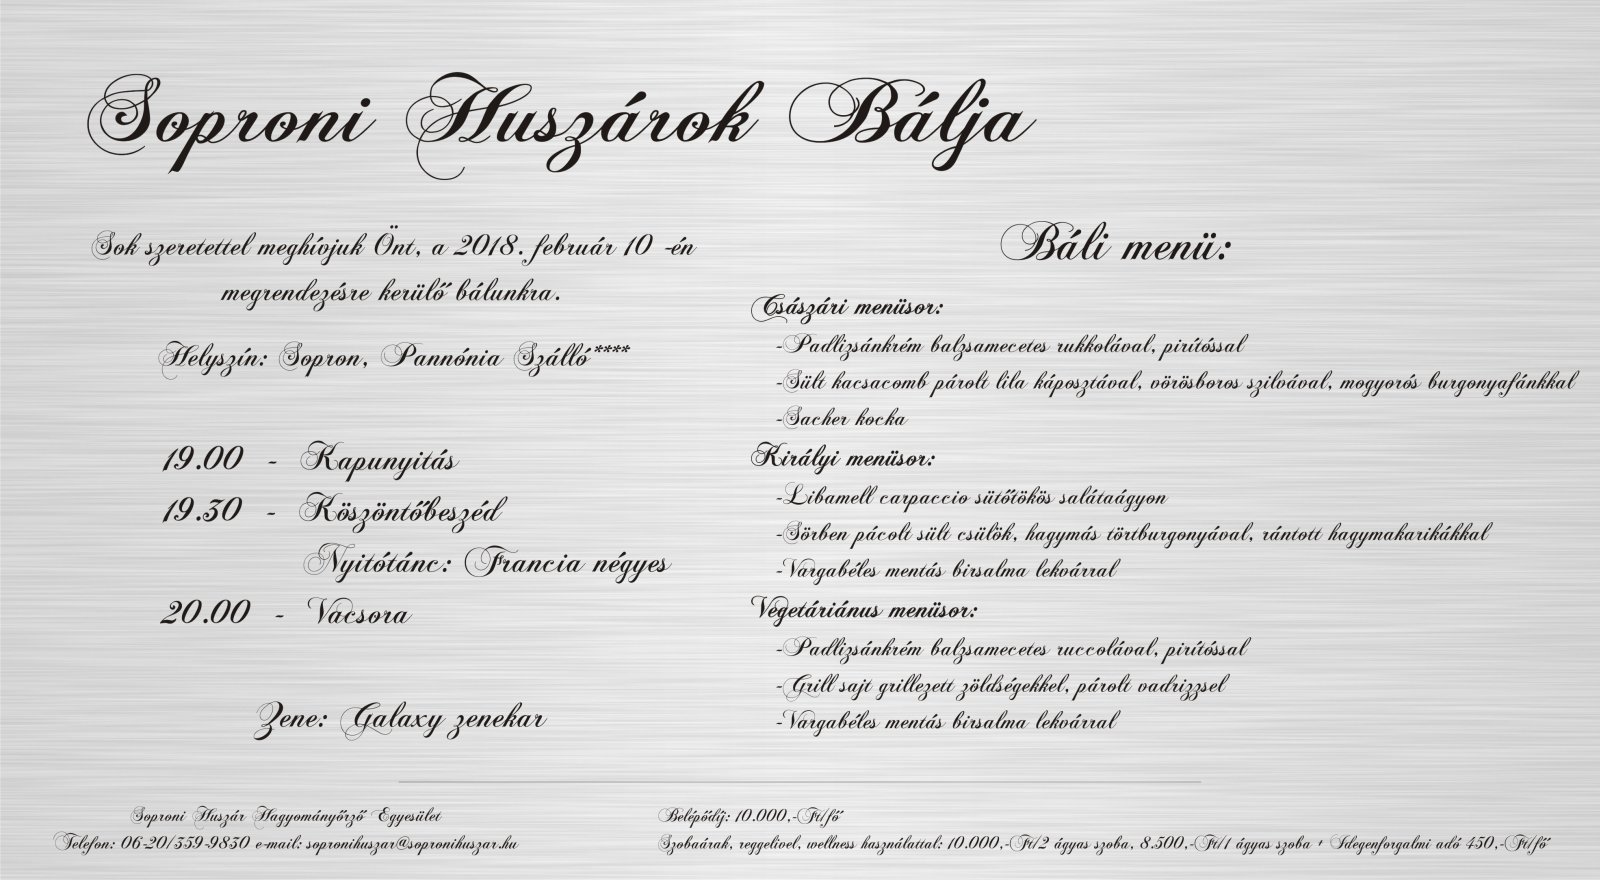 Soproni Huszárok Bálja
Sok szeretettel meghívojuk Önt, a 2018. február 10 -én
megrendezésre kerülő bálunkra.
Helyszín: Sopron, Pannónia Szálló****
19.00 - Kapunyitás
19.30 - Köszöntőbeszéd
Nyitótánc: Francia négyes
20.00 - Vacsora
Zene: Galaxy zenekar
Báli menü:
Császári menüsor:
-Padlizsánkrém balzsamecetes rukkolával, pirítóssal
-Sült kacsacomb párolt lila káposztával, vörösboros szilvával, mogyorós burgonyafánkkal
-Sacher kocka
Királyi menüsor:
-Libamell carpaccio sütőtökös salátaágyon
-Sörben pácolt sült csülök, hagymás törtburgonyával, rántott hagymakarikákkal
-Vargabéles mentás birsalma lekvárral
Vegetáriánus menüsor:
-Padlizsánkrém balzsamecetes ruccolával, pirítóssal
-Grill sajt grillezett zöldségekkel, párolt vadrizzsel
-Vargabéles mentás birsalma lekvárral
Soproni Huszár Hagyományőrző Egyesület
Telefon: 06-20/359-9830 e-mail: sopronihuszar@sopronihuszar.hu
Belépődíj: 10.000,-Ft/fő
Szobaárak, reggelivel, wellness használattal: 10.000,-Ft/2 ágyas szoba, 8.500,-Ft/1 ágyas szoba + Idegenforgalmi adó 450,-Ft/fő